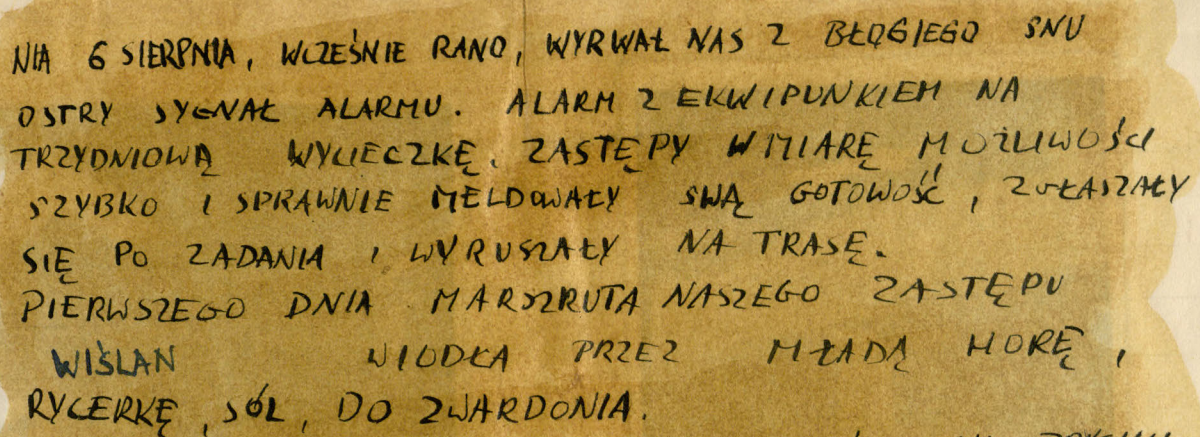 NIA 6 SIERPNIA, WCZEŚNIE RANO, WYRWAŁ NAS Z BŁOGIEGO SNU
OSTRY SYGNAŁ ALARMU. ALARM Z EKWIPUNKIEM NA
TRZYDNIOWĄ WYCIECZKĘ. ZASTĘPY W MIARĘ MOŻLIWOŚCI
SZYBKO I SPRAWNIE MELDOWAŁY SWĄ GOTOWOŚĆ, ZGŁASZAŁY
SIĘ PO ZADANIA I WYRUSZAŁY NA TRASĘ.
PIERWSZEGO DNIA MARSZRUTA NASZEGO ZASTĘPU
WIŚLAN WIODŁA PRZEZ MŁADĄ HORĘ,
RYCERKĘ, SÓL, DO ZWARDONIA.